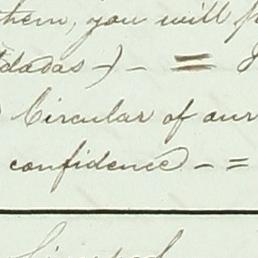 them, you will
dadas) - =
Circular of our
confidence - =